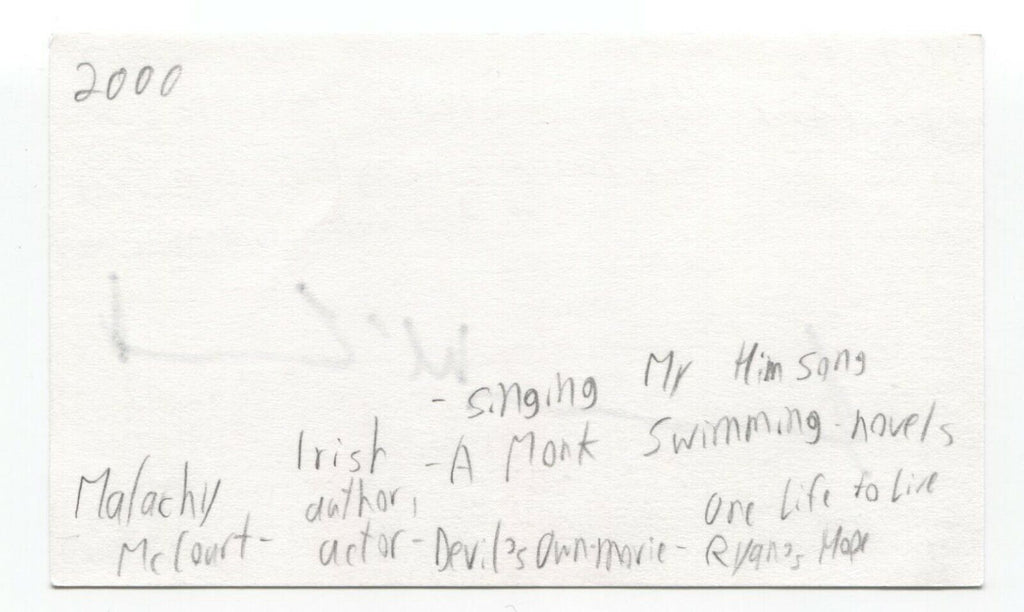 2000
- singing My Him song
Irish - A Monk Swimming - novels
Malachy author, One Life to Live
McCourt - actor - Devil's Own-movie - Ryan's Hope